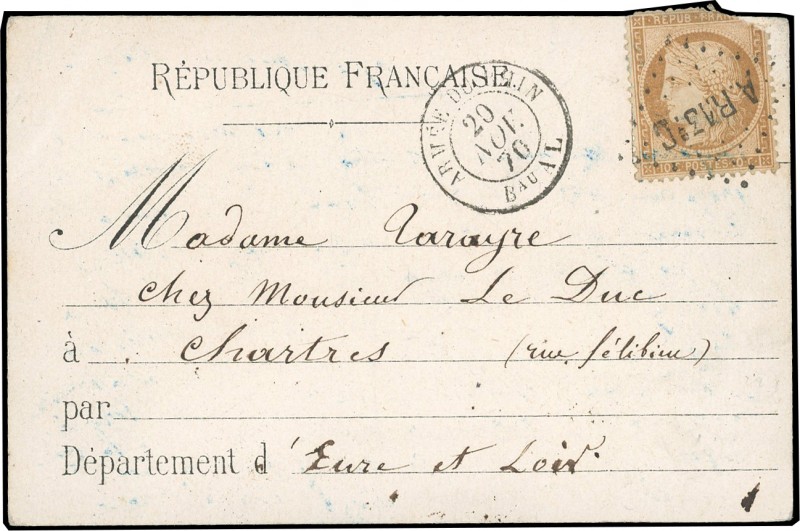 RÉPUBLIQUE FRANÇAISE
ARMÉE DU RHIN
20
NOV.
70
BAU AL
REPUB FRANC
A.R.13ᵉC
10 C POSTES 10 C
Madame Tarayre
chez Monsieur Le Duc
à Chartres (rue félibien)
par
Département d'Eure et Loir.